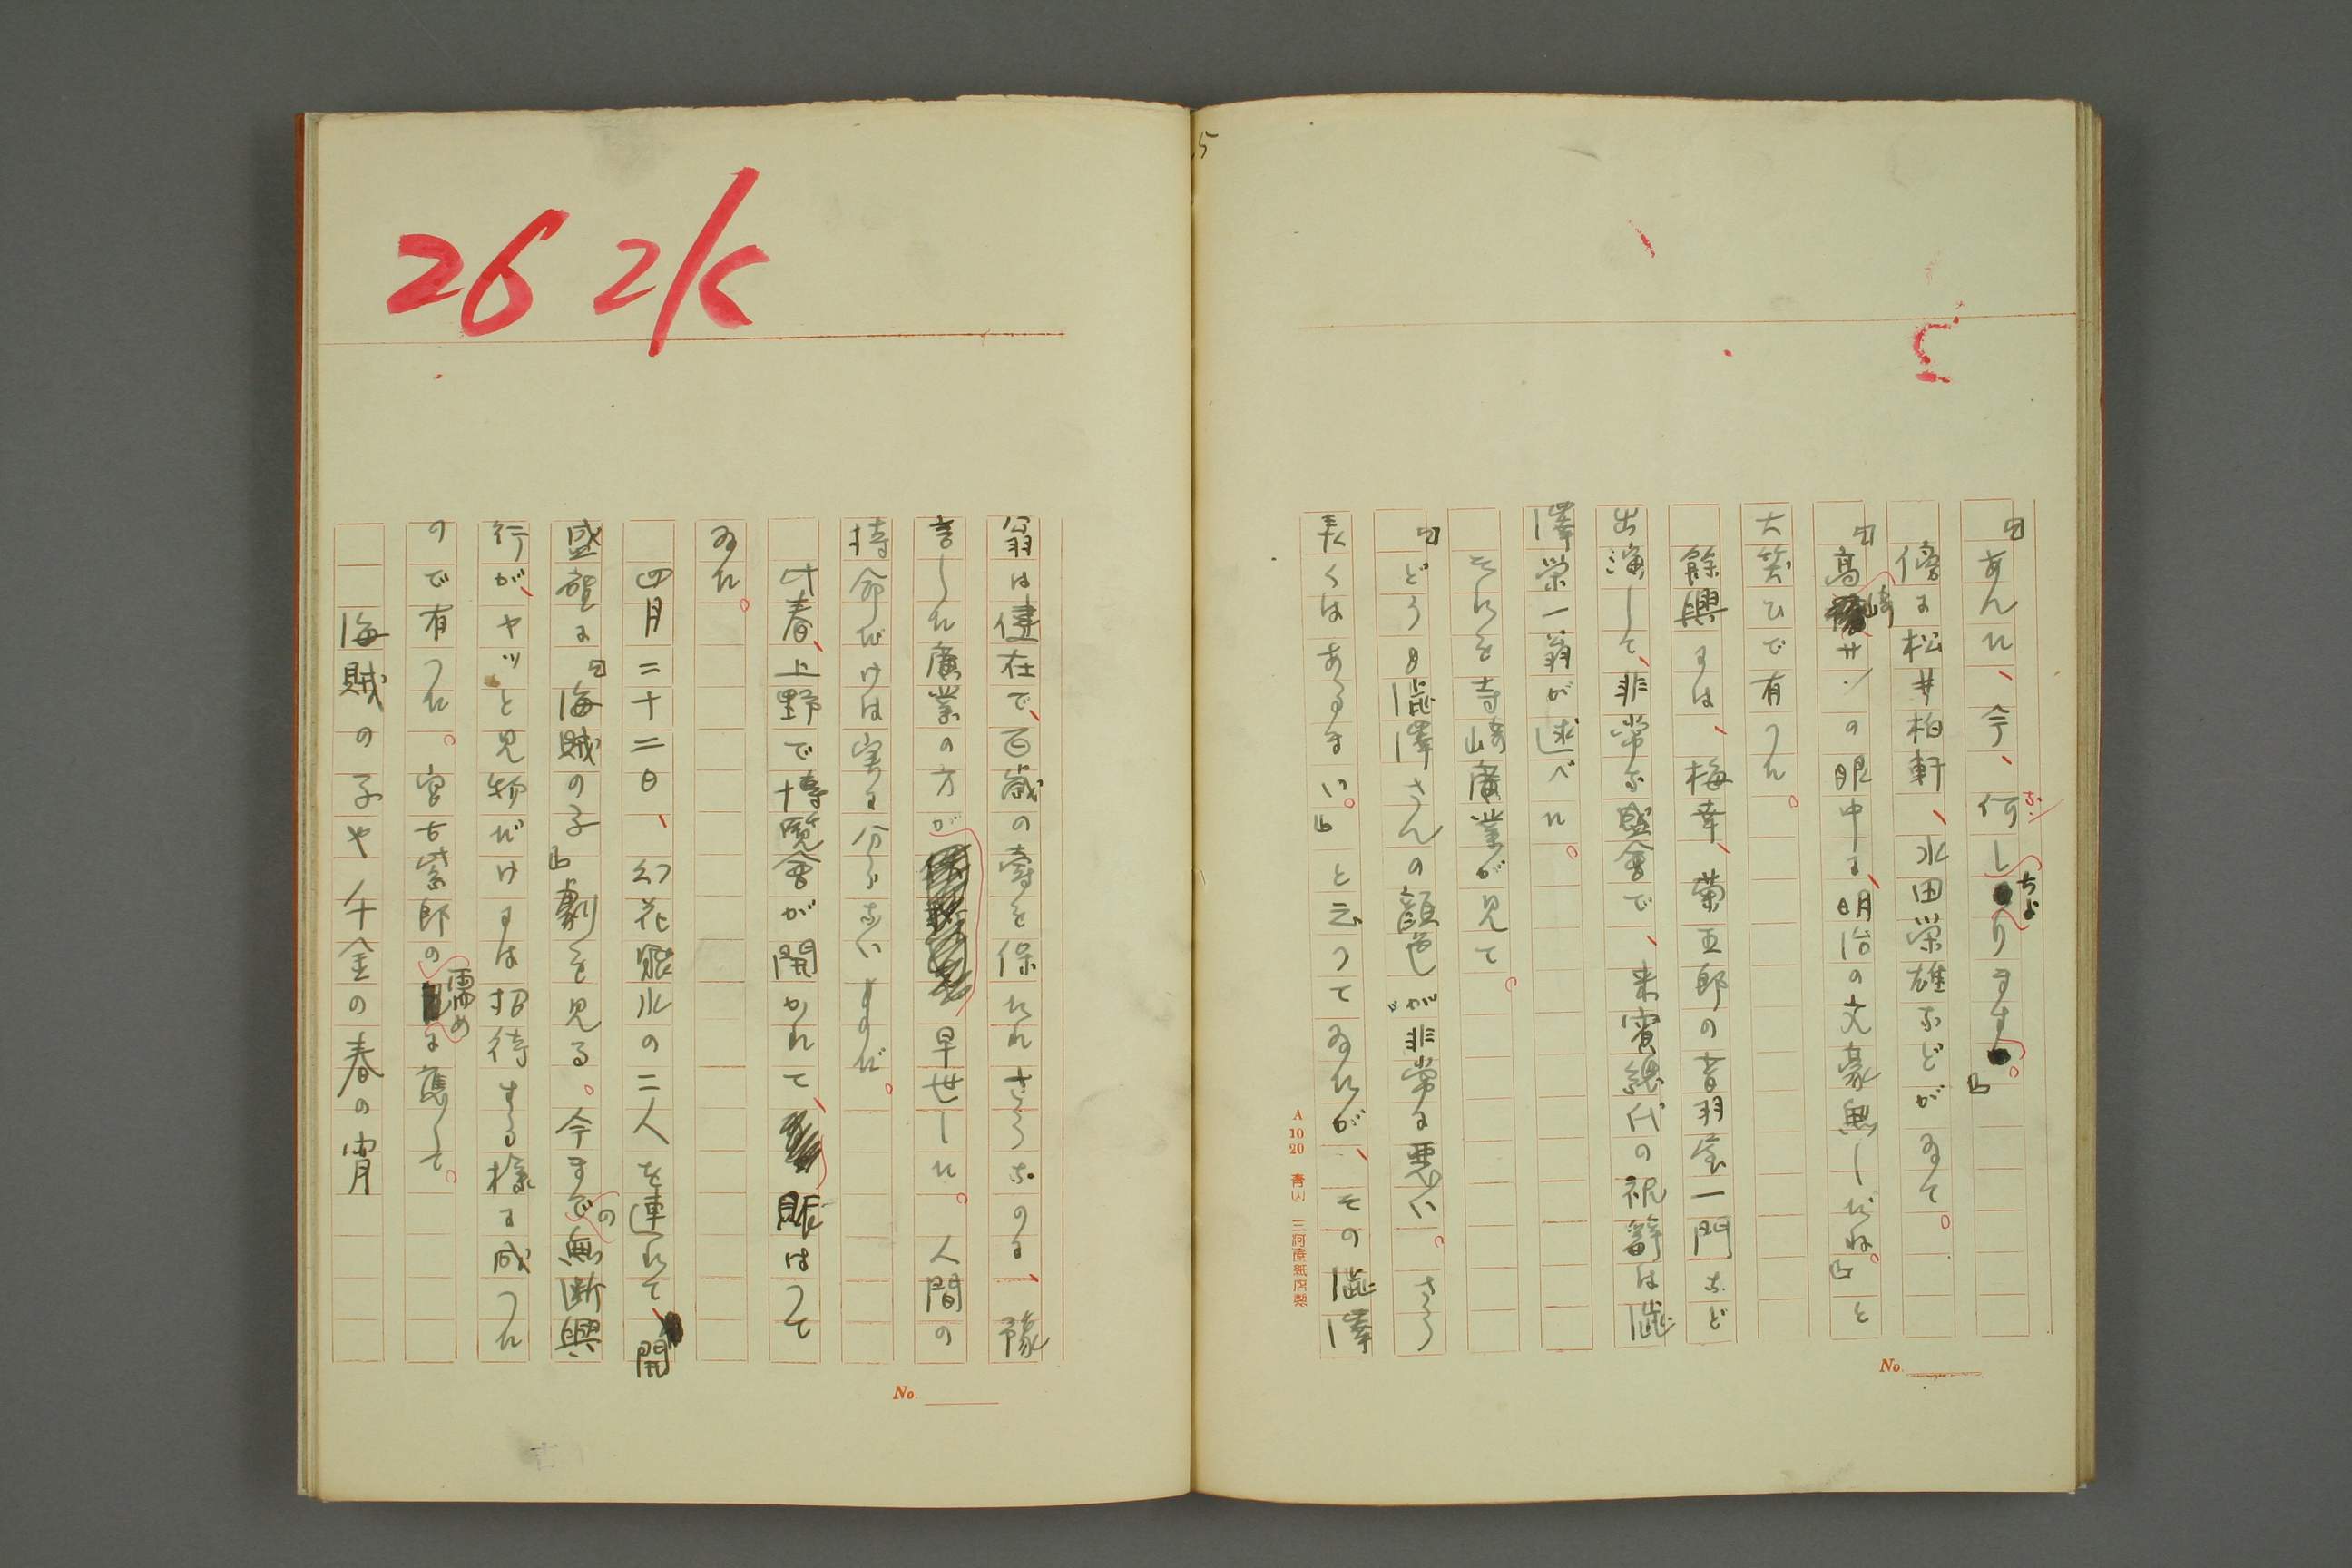 『あんた、今、何しちよりますな。』
傍に松井柏軒、水田栄雄などがゐて。
『高崎サンの眼中に、明治の文豪無しだね。』と
大笑ひで有つた。
餘興には、梅幸、菊五郎の音羽家一門など
出演して、非常な盛會で、来賓総代の祝辞は澁
澤栄一翁が述べた。
それを寺崎廣業が見て。
『どうも澁澤さんの顔色が非常に悪い。さう
長くはあるまい。』と云つてゐたが、その澁澤
A 10 20
翁は健在で、百歳の壽を保たれさうなのに、豫
言した廣業の方が早世した。人間の
持命だけは実に分らないものだ。
此春、上野で博覧會が開かれて、賑はつて
ゐた。
四月二十二日、幻花、眠水の二人を連れて、開
盛座に『海賊の子』劇を見る。今までの無断興
行が、ヤッと見物だけには招待する様に成つた
ので有つた。宮古紫郎の需めに應じて。
海賊の子や千金の春の宵
262K
5
No.
No.